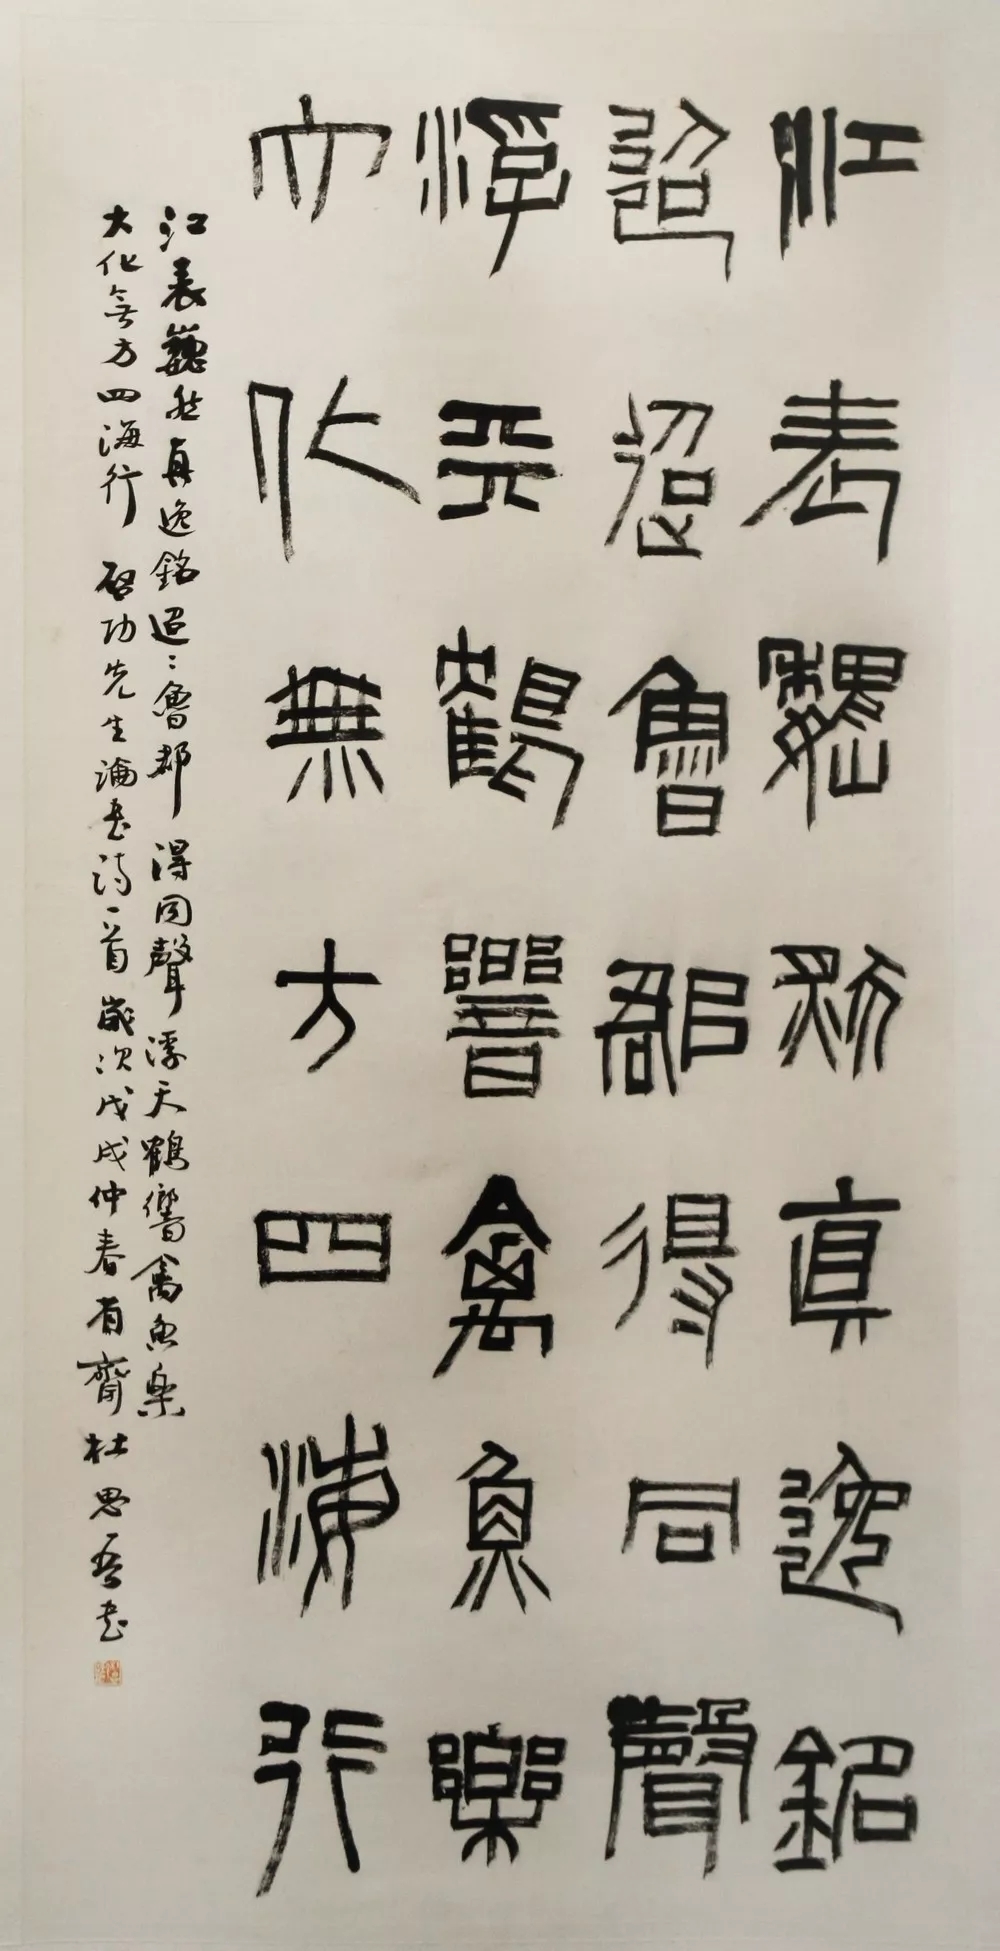 江表巍然真逸銘
迢迢魯郡得同聲
浮天鶴響禽魚樂
大化無方四海行
江表巍然真逸銘迢〻魯郡得同聲浮天鶴響禽魚樂
大化無方四海行 啓功先生論書詩一首歲次戊戌仲春有齊杜思吾書